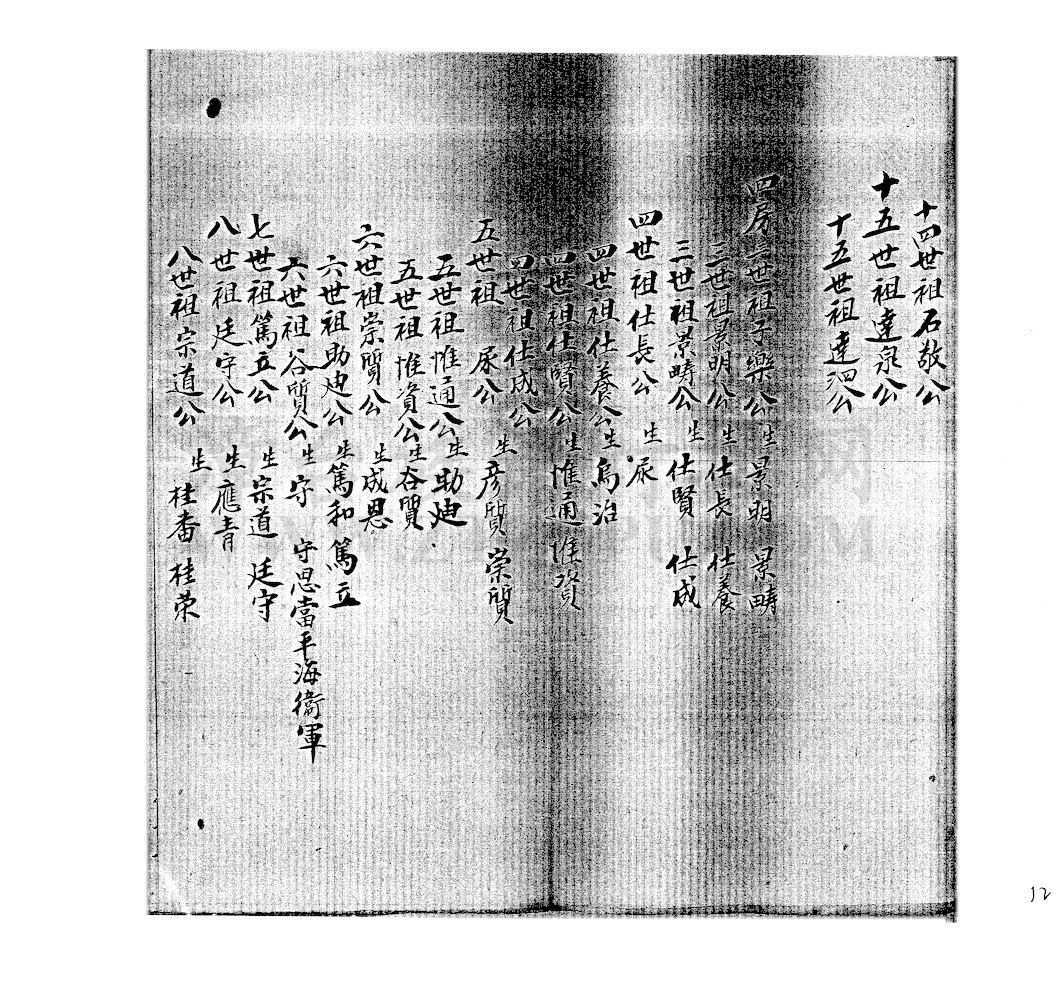 十四世祖石敬公
十五世祖達泉公
十五世祖達泗公
四房二世祖子樂公生景明 景疇
三世祖景明公生仕長 仕養
三世祖景疇公生仕賢 仕成
四世祖仕長公生尿
四世祖仕養公生為治
四世祖仕賢公生惟通 惟資
四世祖仕成公
五世祖尿公生彦質 崇質
五世祖惟通公生助廸
五世祖惟資公生谷質
六世祖崇質公生成恩
六世祖助廸公生篤和 篤立
六世祖谷質公生守 守恩當平海衛軍
七世祖篤立公生宗道 廷守
八世祖廷守公生應青
八世祖宗道公生桂畨 桂荣
12